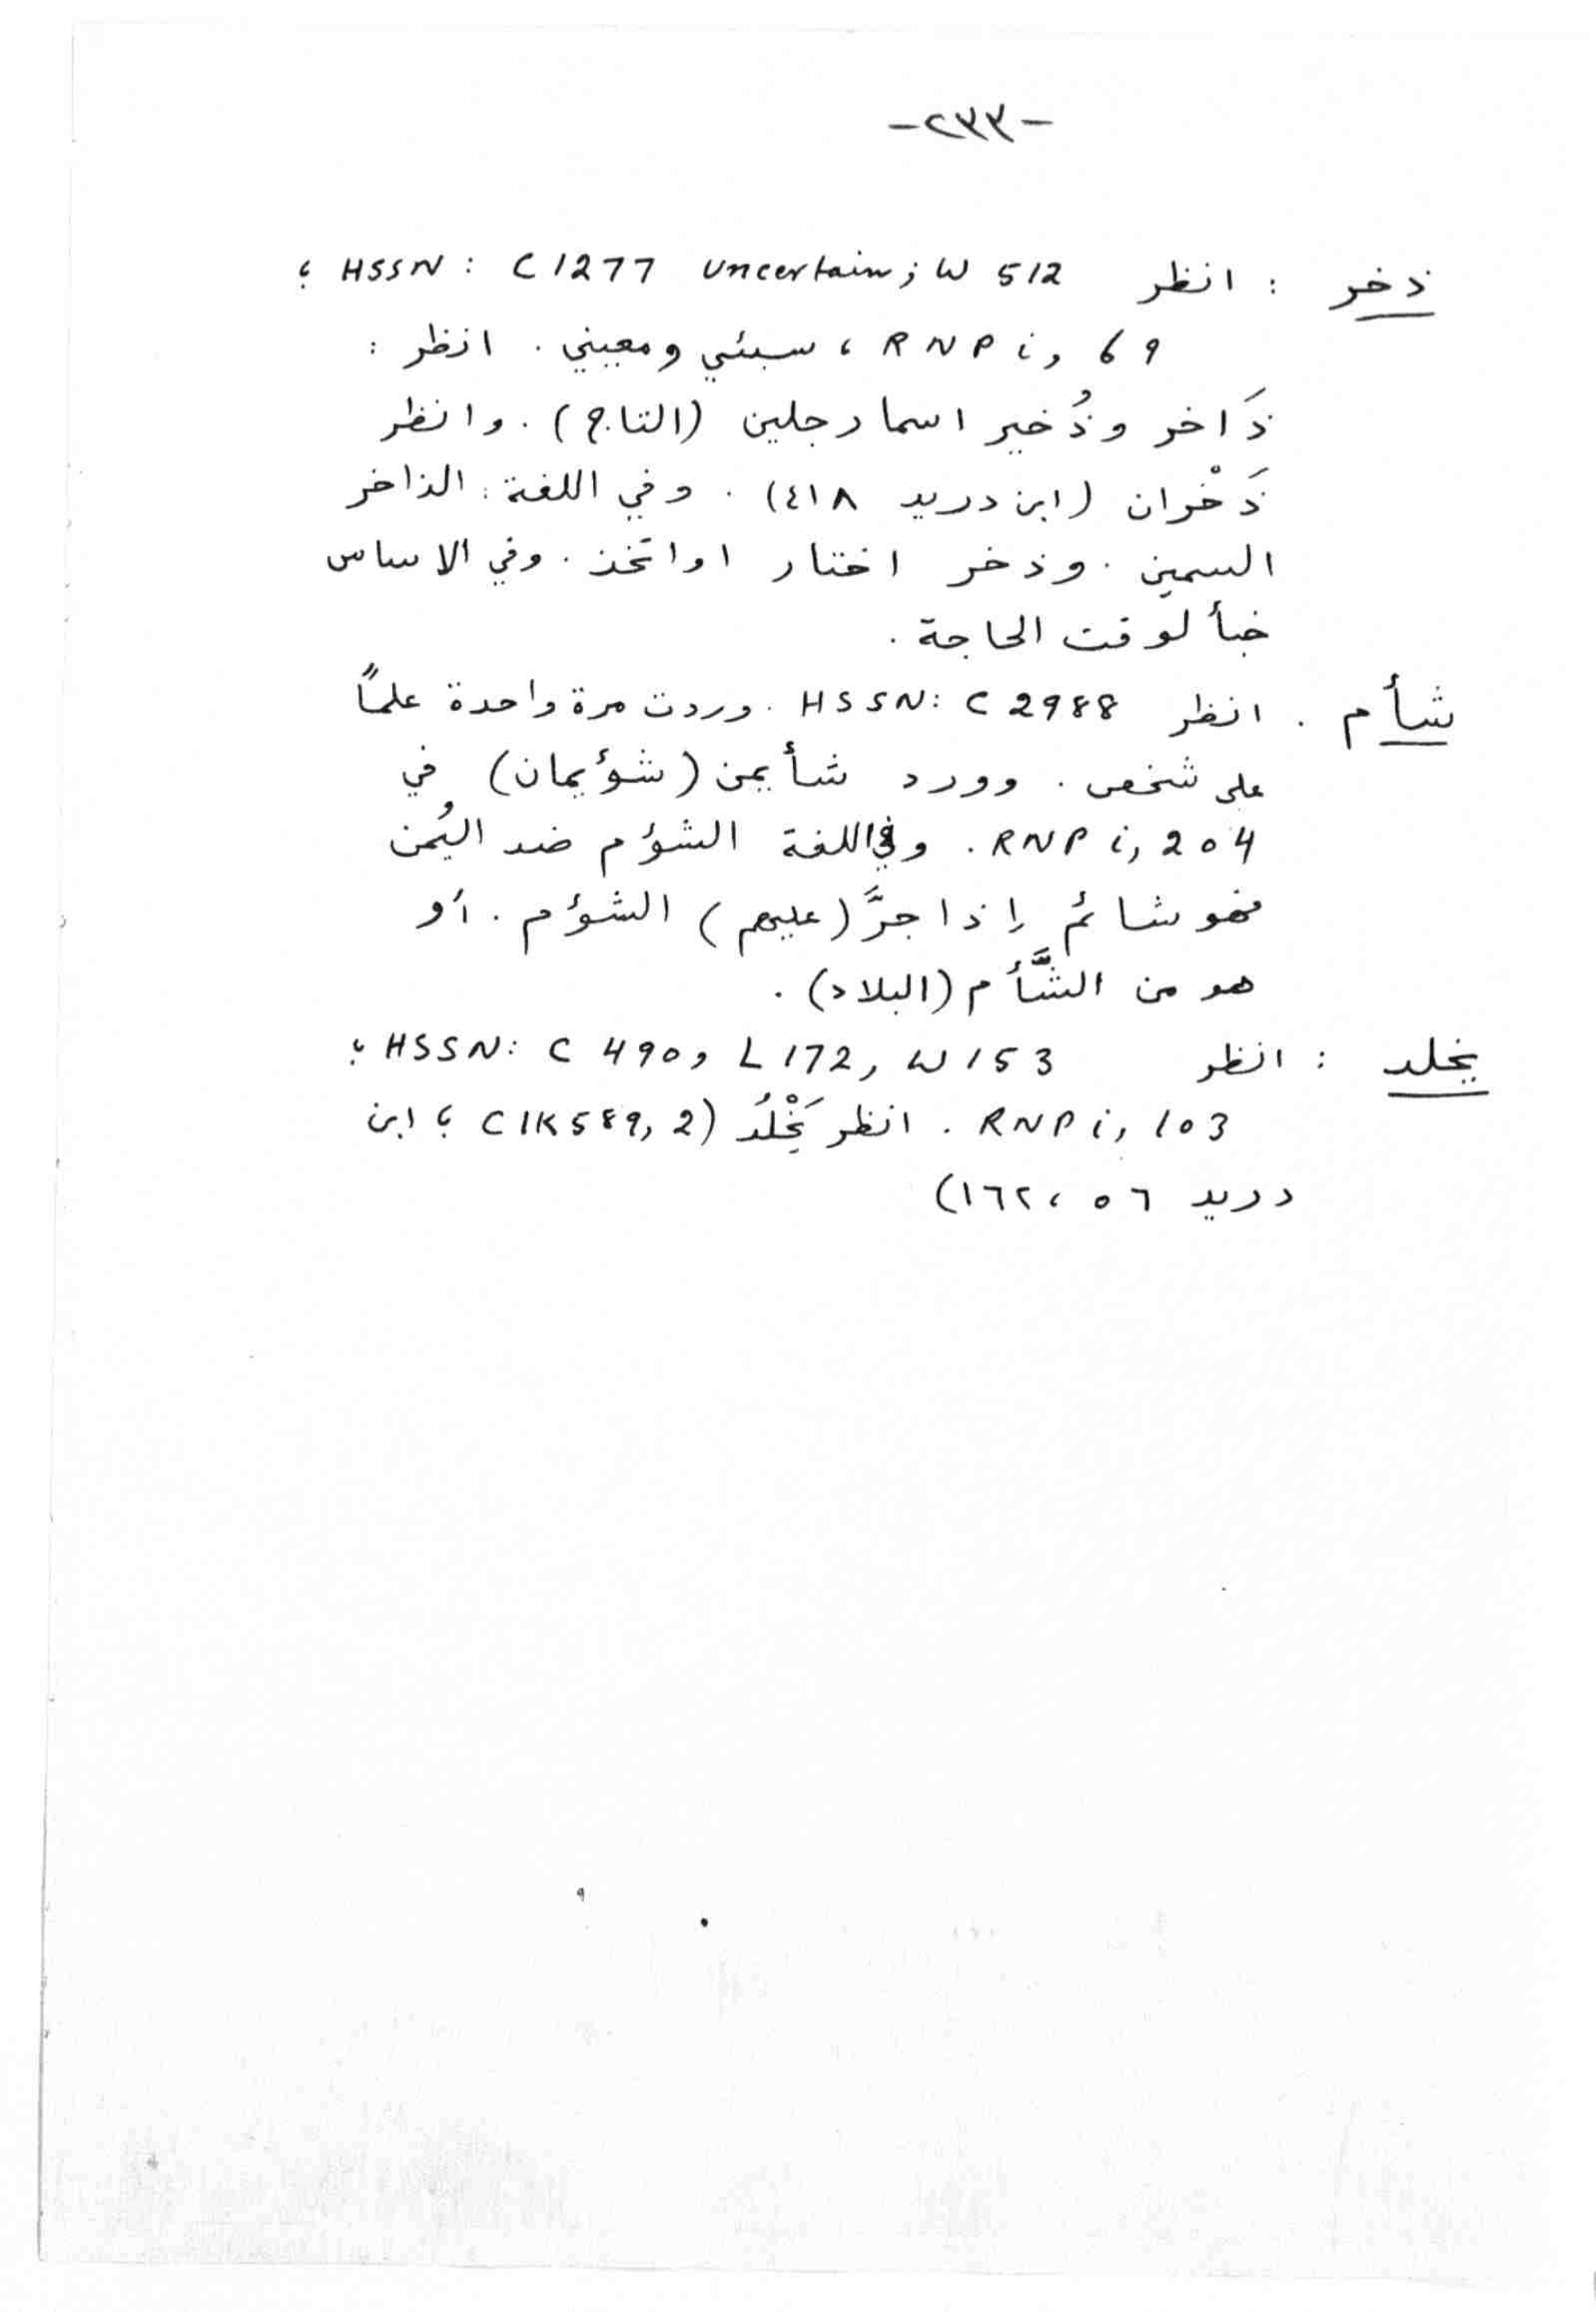 -٢٣٣-
ذخر : انظر HSSN : C 1277 uncertain; W 512 ؛
RNP i, 69 ، سبئي ومعيني . انظر :
ذَاخر وذُخير اسما رجلين (التاج) . وانظر
ذَخْران (ابن دريد ٤١٨) . وفي اللغة : الذاخر
السمين . وذخر اختار او اتخذ . وفي الاساس
خبأ لوقت الحاجة .
شأم . انظر HSSN: C 2988 . وردت مرة واحدة علماً
على شخص . وورد شأيمن (شؤيمان) في
RNP i, 204 . وفي اللغة الشؤم ضد اليُمن
فهو شائم إذا جرَّ (عليهم) الشؤم . أو
هو من الشَّأم (البلاد) .
يخلد : انظر HSSN: C 490, L 172, W 153 ؛
RNP i, 103 . انظر يَخْلُد (CIK 589, 2 ؛ ابن
دريد ٥٦ ، ١٦٢)